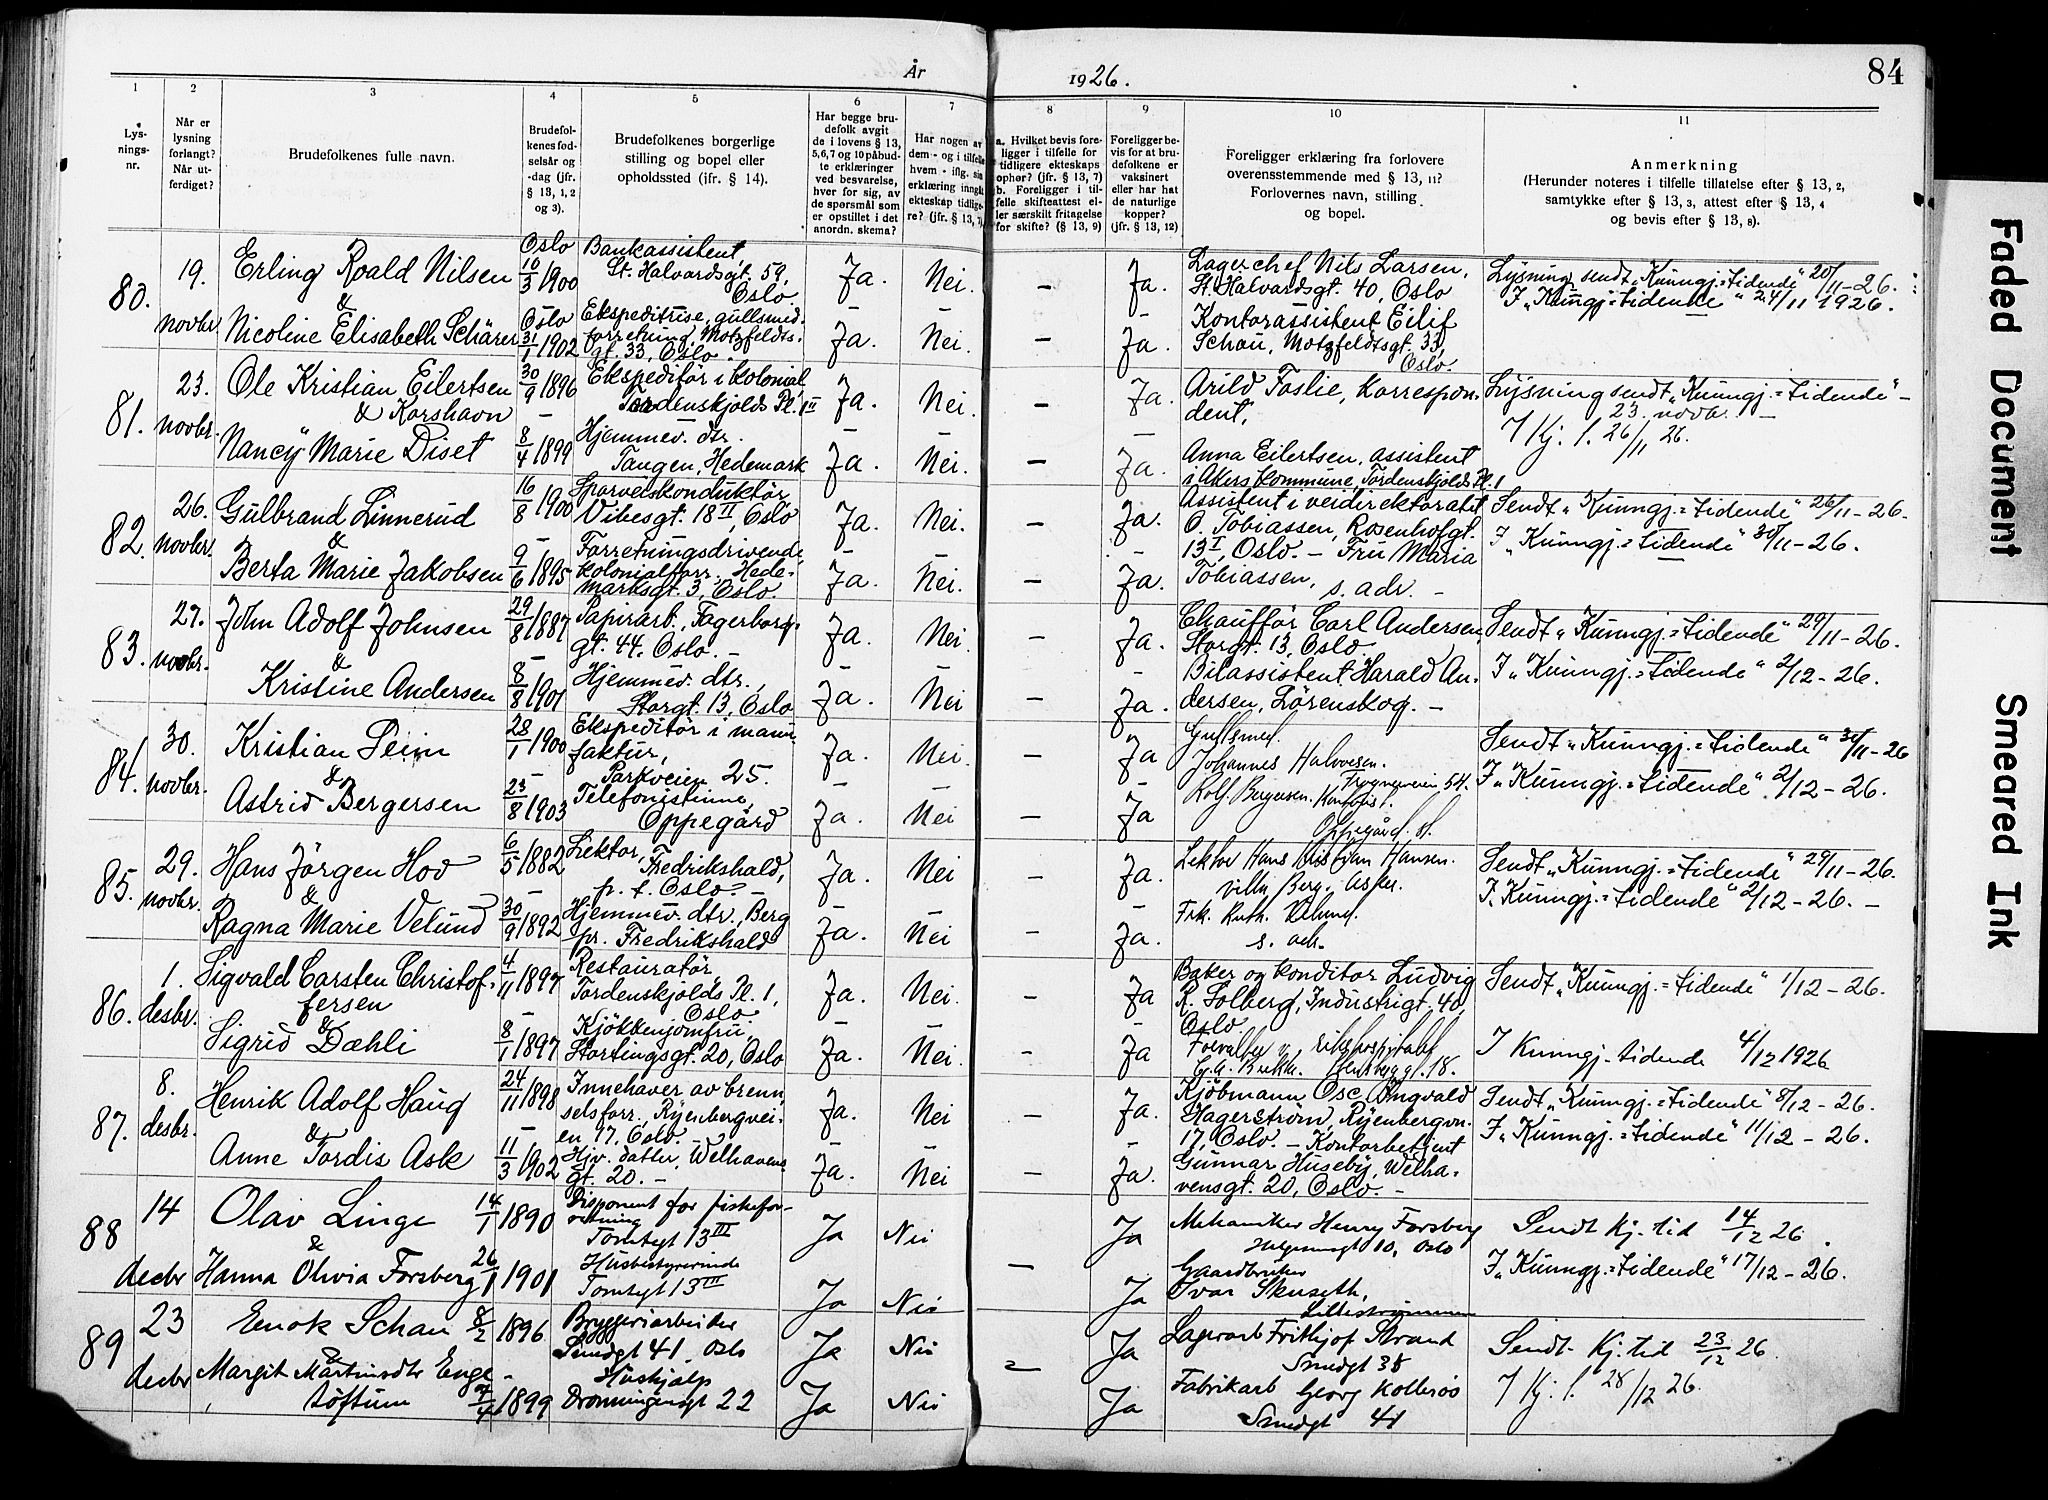 År 1926.
84
1
2
3
4
5
6
7
8
9
10
11
Lys-
nings-
nr.
Når er
lysning
forlangt?
Når ut-
ferdiget?
Brudefolkenes fulle navn.
Brudefol-
kenes fød-
selsår og
-dag (jfr.
§ 13, 1, 2
og 3).
Brudefolkenes borgerlige
stilling og bopel eller
opholdssted (ifr. § 14).
Har begge bru-
defolk avgit
de i lovens § 13,
5,6,7 og 10 påbud-
te erklæringer
ved besvarelse,
hver for sig, av
de spørsmål som
er opstillet i det
anordn. skema?
Har nogen av
dem - og i tilfelle
hvem - iflg. sin
erklæring inngått
ekteskap tidlige-
re? (jfr. § 13, 7)
a. Hvilket bevis fore-
ligger i tilfelle for
tidligere ekteskaps
ophør? (jfr. § 13, 7)
b. Foreligger i til-
felle skifteattest el-
ler særskilt fritagelse
for skifte? (§ 13, 9)
Foreligger be-
vis for at bru-
defolkene er
vaksinert
eller har hat
de naturlige
kopper?
(jfr. § 13, 12)
Foreligger erklæring fra forlovere
overensstemmende med § 13, 11?
Forlovernes navn, stilling
og bopel.
Anmerkning
(Herunder noteres i tilfelle tillatelse efter § 13, 2,
samtykke efter § 13, 3, attest efter § 13, 4
og bevis efter § 13, 8).
80.
19.
novbr.
Erling Roald Nilsen
&
Nicoline Elisabeth Schärer
Oslo
10/3 1900
Oslo
31/1 1902
Bankassistent,
St. Halvardsgt. 59,
Oslo.
Ekspeditrise, gullsmed-
forretning, Motzfeldts-
gt. 33, Oslo.
Ja.
Ja.
Nei.
Nei.
Ja.
Ja.
Lagerchef Nils Larsen,
St. Halvardsgt. 40, Oslo
Kontorassistent Eilif
Schou, Motzfeldtsgt. 33,
Oslo.
Lysning sendt „Kunngj.=tidende" 20/11-26.
I „Kunngj=tidende" 24/11 1926.
81.
23.
novbr.
Ole Kristian Eilertsen
& Korshavn
Nancy Marie Diset
30/9 1896
8/4 1899
Ekspeditör i kolonial
Tordenskjolds Pl. 1 II
Hjemmev. dtr.
Tangen, Hedemark
Ja.
Ja.
Nei.
Nei.
Ja.
Ja.
Arild Foslie, Korrespon-
dent,
Anna Eilertsen, assistent
i Akers kommune, Tordenskjolds Pl. 1
Lysning sendt „Kunngj.=tidende" -
23. novbr. -
I Kj. t. 26/11 26.
82.
26.
novbr.
Gulbrand Linnerud
&
Berta Marie Jakobsen
16/8 1900
9/6 1895
Sporveiskonduktör
Vibesgt. 18 II, Oslo
Forretningsdrivende
kolonialforr. Hede-
marksgt. 3, Oslo
Ja.
Ja.
Nei.
Nei.
Ja.
Ja.
Assistent i veidirektoratet
O. Tobiassen, Rosenhofgt.
13 I, Oslo. - Fru Maria
Tobiassen, s. adr. -
Sendt „Kunngj.=tidende" 26/11-26.
I „Kunngj.=tidende" 30/11-26.
83.
27.
novbr.
John Adolf Johnsen
&
Kristine Andersen
29/8 1887
8/8 1901
Papirarb., Fagerborg-
gt. 44. Oslo. -
Hjemmev. dtr.,
Storgt. 13, Oslo
Ja.
Ja.
Nei
Nei
Ja.
Ja.
Chaufför Carl Andersen,
Storgt. 13, Oslo
Bilassistent Harald An-
dersen, Lörenskog. -
Sendt „Kunngj.=tidende" 29/11-26.
I „Kunngj.=tidende" 2/12-26.
84.
30.
novbr.
Kristian Seim
&
Astrid Bergersen
28/1 1900
23/8 1903
Ekspeditör i manu-
faktur,
Parkveien 25.
Telefonistinne,
Oppegård
Ja.
Ja.
Nei.
Nei
Ja
Ja
Gullsmed.
Johannes Halvorsen.
Frognerveien 54.
Rolf Bergersen. Kontorist.
Oppegård. st.
Sendt „Kunngj.=tidende" 30/11-26
I „Kunngj.=tidende". 2/12-26.
85.
29.
novbr.
Hans Jörgen Hov
&
Ragna Marie Velund
6/5 1882
30/9 1892
Lektor,
Fredrikshald,
p. t. Oslo. -
Hjemmev. dtr., Berg
pr. Fredrikshald
Ja.
Ja.
Nei
Nei
Ja.
Ja.
Lektor Hans Kristian Hansen.
villa Berg. Asker.
Frk. Ruth. Velund.
s. adr.
Sendt „Kunngj.=tidende" 29/11-26.
I „Kunngj.=tidende" 2/12-26. -
86.
1.
desbr.
Sigvald Carsten Christof-
fersen
&
Sigrid Dæhli
4/11 1897
8/1 1897
Restauratör,
Tordenskjolds Pl. 1,
Oslo
Kjökkenjomfru,
Stortingsgt. 20, Oslo
Ja.
Ja.
Nei.
Nei
Ja
Ja
Baker og konditor Ludvig
R. Solberg, Industrigt. 40,
Oslo.
Forvalter v. rikshospitalet
Sendt „Kunngj.=tidende" 1/12-26.
I Kunngj.-tidende 4/12 1926
87.
8.
desbr.
Henrik Adolf Haug
&
Anne Tordis Ask
24/11 1898
11/3 1902
Innehaver av brenn-
selsforr., Ryenbergvei-
en 17, Oslo.
Hjv. datter, Welhavens
gt. 20. -
Ja.
Ja.
Nei
Nei
Ja.
Ja.
Kjöbmann Osc. Yngvald
Hagerström, Ryenbergvn.
17, Oslo. - Kontorbetjent
Gunnar Huseby, Welha-
vensgt. 20, Oslo. -
Sendt „Kunngj.=tidende" 8/12-26.
I „Kunngj.=tidende" 11/12-26.
88
14
decbr
Olav Linge
&
Hanna Olivia Forsberg
14/1 1890
26/1 1901
Disponent for fiskefor-
retning
Tomtegt 13 III
Husbestyrerinde
Tomtegt 13 III
Ja
Ja
Nei
Nei
Ja
Ja
Mekaniker Henry Forsberg
Helgesensgt 10, Oslo
Gaardbruker
Ivar Skuseth,
Lillestrømmen
Sendt Kj. tid 14/12 26.
I „Kunngj.=tidende" 17/12-26.
89
23
decbr
Enok Schau
&
Margit Martinsdtr Enge-
töftum
8/2 1896
7/4 1899
Bryggeriarbeider
Smedgt 41. Oslo
Hushjælp
Dronningensgt 22
Ja
Ja
Nei
Nei
Ja
Ja
Lagerarb Frithjof Strand
Smedgt 38
Fabrikarb Georg Kolberös
Smedgt 41
Sendt Kj. tid 23/12 26.
I Kj. t. 28/12 26.
Faded Document
Smeared Ink